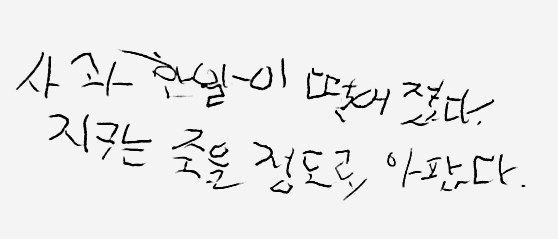 사과 한알이 떨어 졌다.
지구는 죽을 정도로 아팠다.